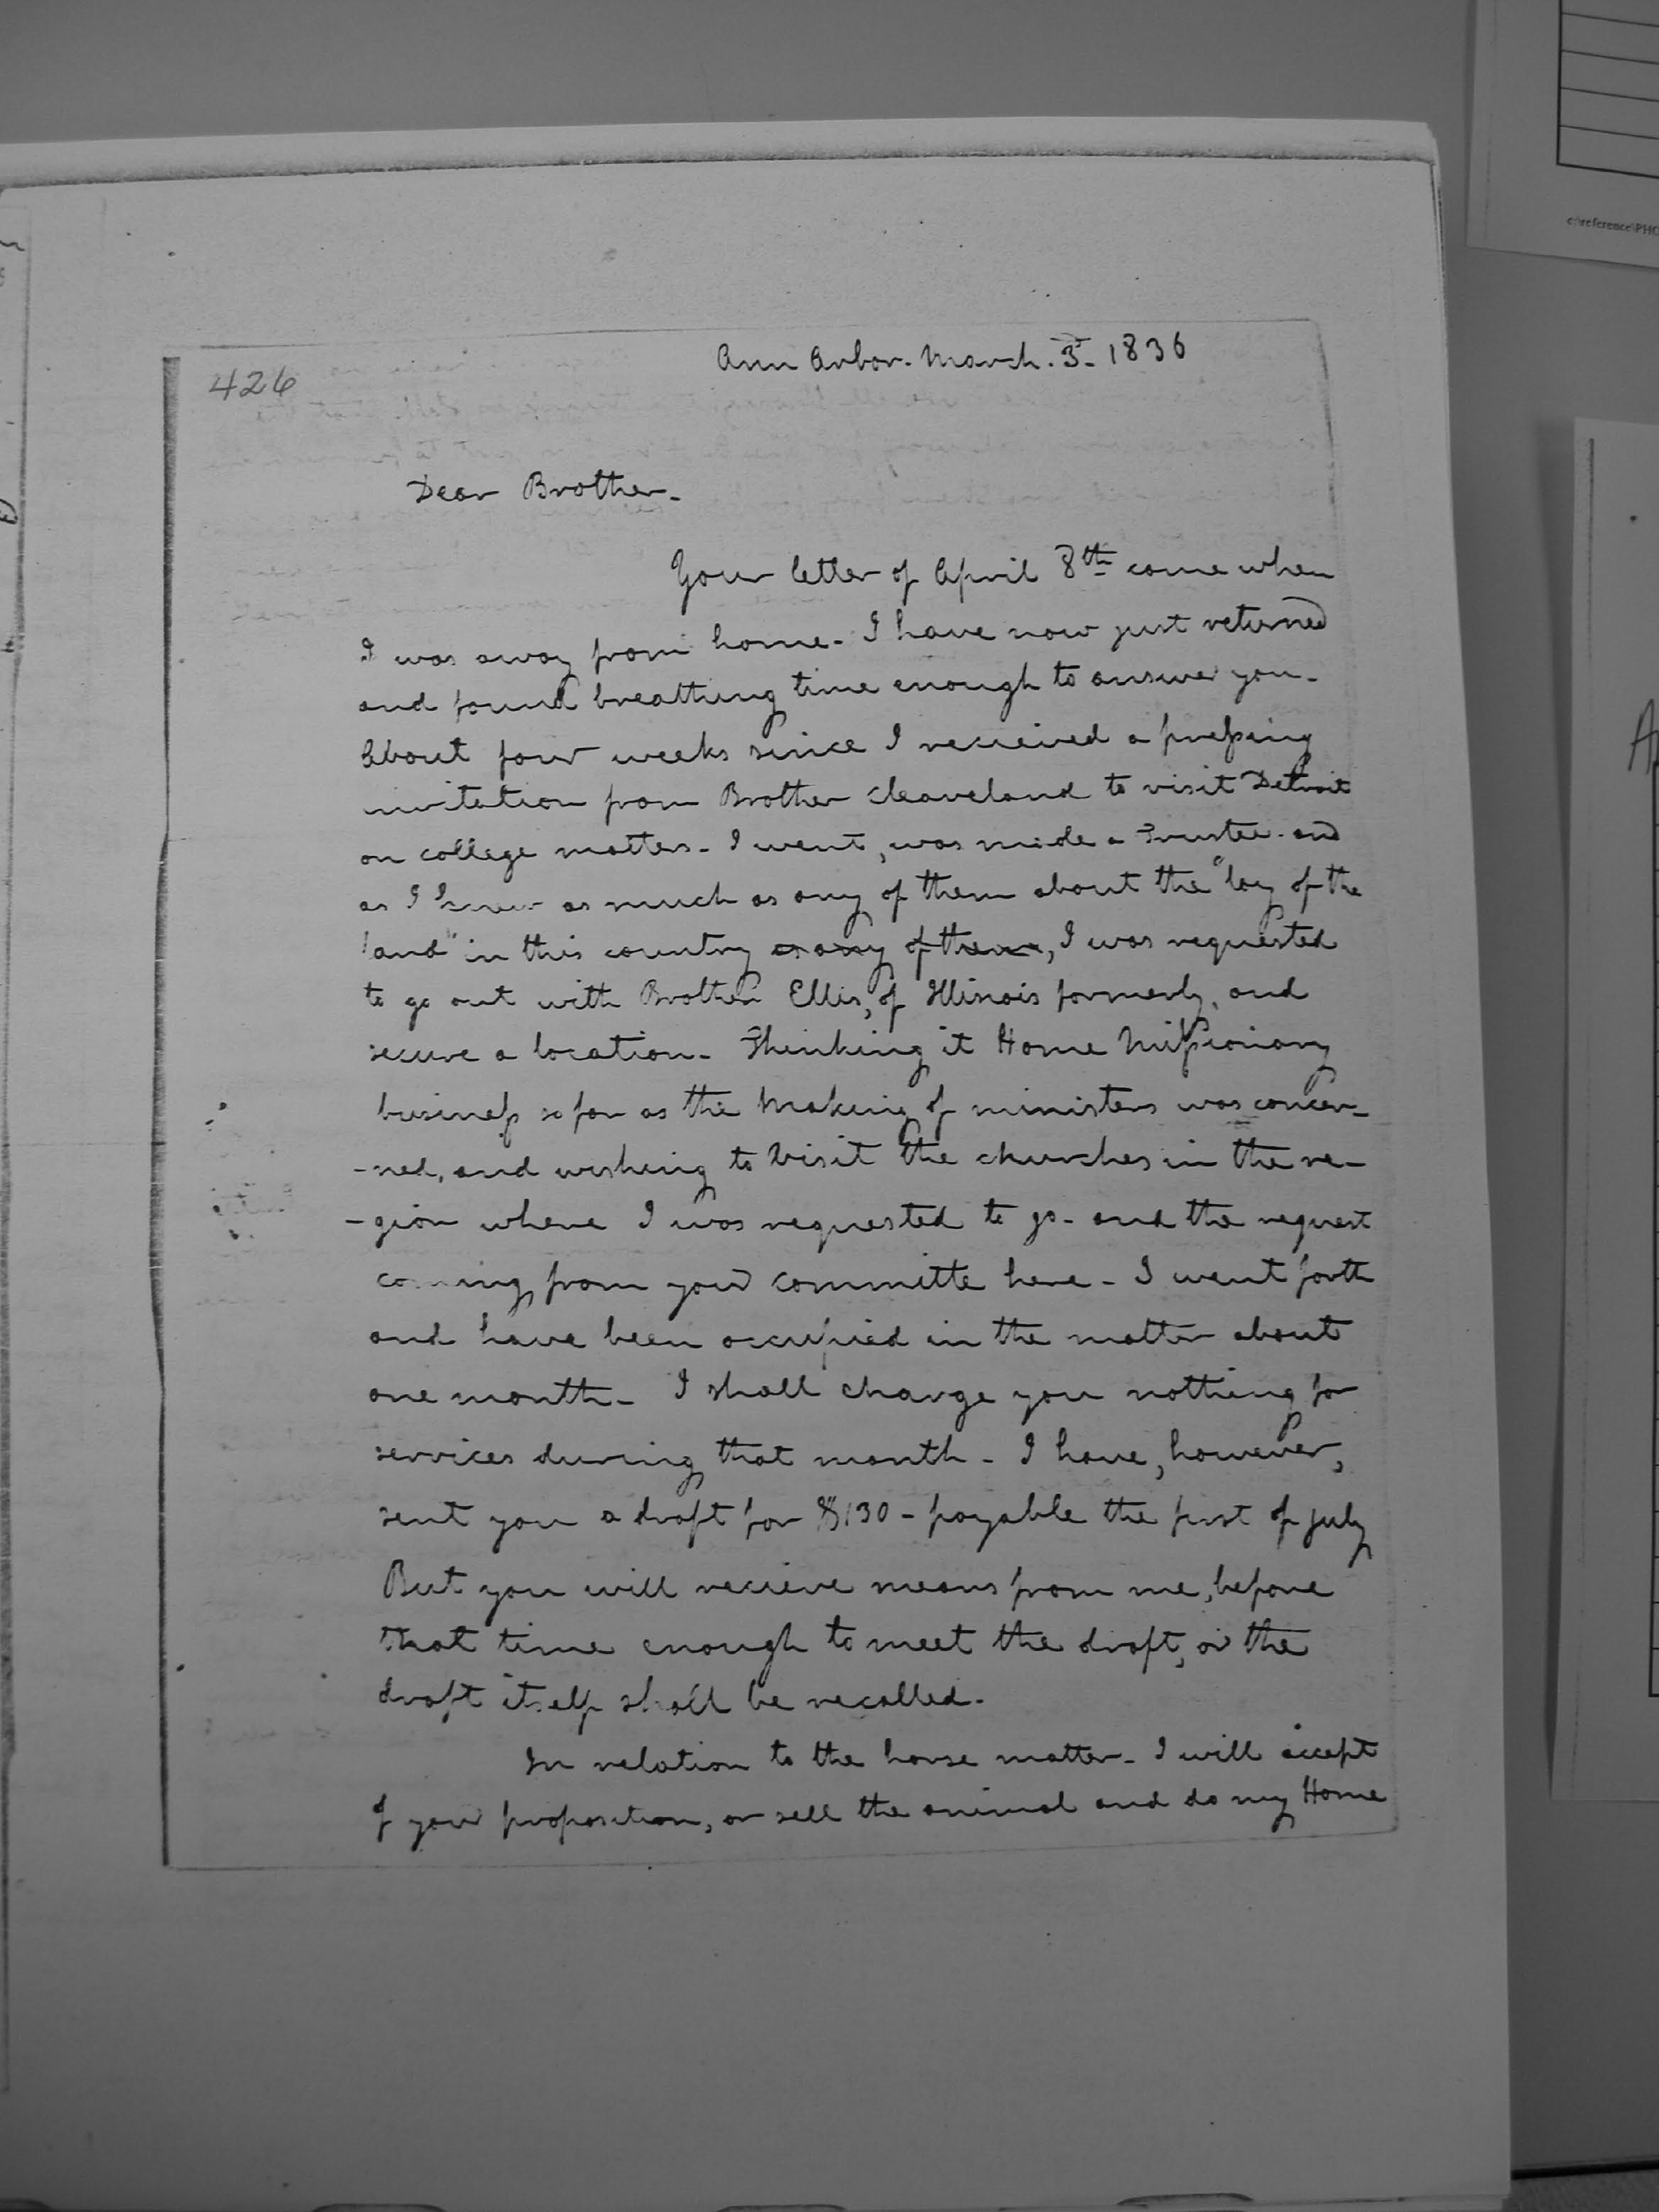 c:\reference\PHO
426
Ann Arbor. March. 3. 1836
Dear Brother.
Your letter of April 8th came when
I was away from home - I have now just returned
and found breathing time enough to answer you.
About four weeks since I recieved a pressing
invitation from Brother Cleaveland to visit Detroit
on college matters - I went, was made a Trustee and
as I knew as much as any of them about the "lay of the
land" in this country as any of them, I was requested
to go out with Brother Ellis, of Illinois formerly, and
secure a location. Thinking it Home Missionary
business so far as the making of ministers was concer-
-ned, and wishing to visit the churches in the re-
-gion where I was requested to go - and the request
coming from your committe here - I went forth
and have been occupied in the matter about
one month - I shall charge you nothing for
services during that month - I have, however,
sent you a draft for $130 - payable the first of july
But you will recieve means from me, before
that time enough to meet the draft, or the
draft itself shall be recalled.
In relation to the horse matter - I will accept
of your proposition, or sell the animal and do my Home